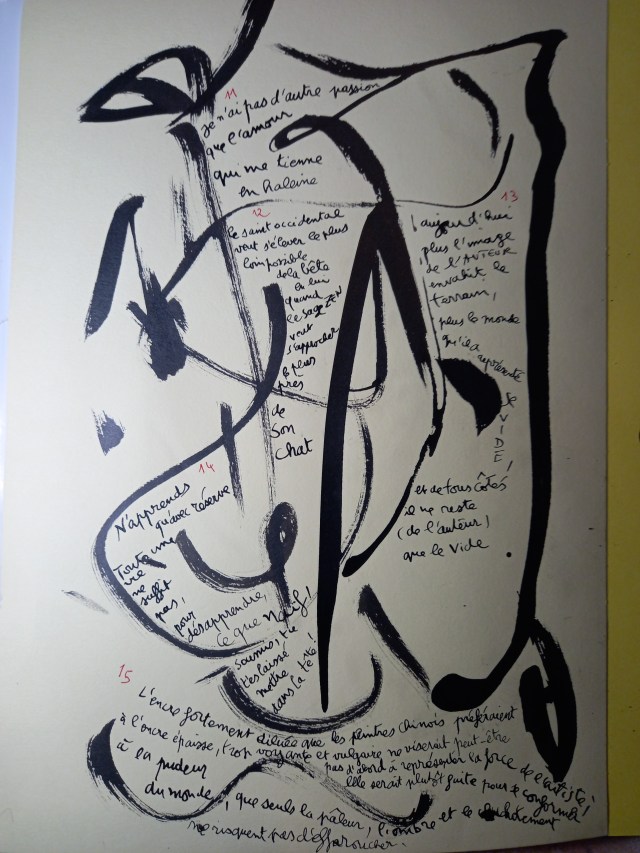 11
Je n'ai pas d'autre passion
que l'amour
qui me tienne
en haleine
12
Le saint occidental
veut s'élever le plus
loin possible
de la bête
en lui
quand
le sage ZEN
veut
s'approcher
le plus
près
de
son
chat
13
aujourd'hui
plus l'image
de l'AUTEUR
envahit le
terrain,
plus le monde
qu'il a représenté
se
VIDE !
et de tous côtés
il ne reste
(de l'auteur)
que le vide
14
N'apprends
qu'avec réserve
Toute une
vie
ne
suffit
pas,
pour
désapprendre
ce que naïf !
soumis, tu
t'es laissé
mettre
dans la tête !
15
L'encre fortement diluée que les peintres chinois préféraient
à l'encre épaisse, trop voyante et vulgaire ne viserait peut-être
pas d'abord à représenter la force de l'artiste !
Elle serait plutôt faite pour se conformer
à la pudeur
du monde, que seuls la pâleur, l'ombre et le chuchotement
ne risquent pas d'effaroucher.